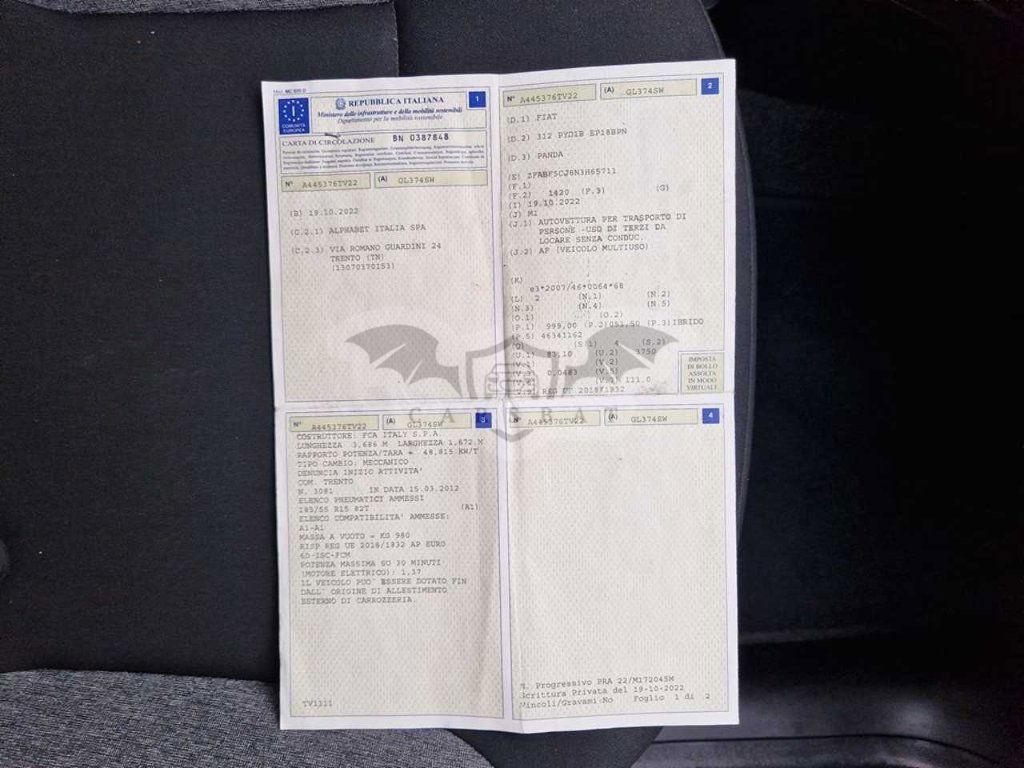 Mod. MC 820 D
COMUNITÀ
EUROPEA
REPUBBLICA ITALIANA
1
Ministero delle infrastrutture e della mobilità sostenibili
Dipartimento per la mobilità sostenibile
CARTA DI CIRCOLAZIONE BN 0387848
N° A445376TV22 (A) GL374SW
(B) 19.10.2022
(C.2.1) ALPHABET ITALIA SPA
(C.2.3) VIA ROMANO GUARDINI 24
TRENTO (TN)
(13070370153)
N° A445376TV22 (A) GL374SW 2
(D.1) FIAT
(D.2) 312 PYD1B EP18BPN
(D.3) PANDA
(E) ZFABFSCJ8N3H65711
(F.1)
(F.2) 1420 (F.3) (G)
(I) 19.10.2022
(J) M1
(J.1) AUTOVETTURA PER TRASPORTO DI
PERSONE -USO DI TERZI DA
LOCARE SENZA CONDUC.
(J.2) AF (VEICOLO MULTIUSO)
(K)
e3*2007/46*0064*68
(L) 2 (N.1) (N.2)
(N.3) (N.4) (N.5)
(O.1) (O.2)
(P.1) 999,00 (P.2)051,50 (P.3)IBRIDO
(P.5) 46341162
(Q) (S.1) 4 (S.2)
(U.1) 83,10 (U.2) 3750
(V.1) (V.2)
(V.3) 0,0483 (V.5)
111.0
(V.9) REG UE 2018F1832
IMPOSTA
DI BOLLO
ASSOLTA
IN MODO
VIRTUALE
CARSBAT
N° A445376TV22 (A) GL374SW 3
COSTRUTTORE: FCA ITALY S.P.A.
LUNGHEZZA 3,686 M LARGHEZZA 1,672 M
RAPPORTO POTENZA/TARA = 48,815 KW/T
TIPO CAMBIO: MECCANICO
DENUNCIA INIZIO ATTIVITA'
COM. TRENTO
N. 3081 IN DATA 15.03.2012
ELENCO PNEUMATICI AMMESSI
185/55 R15 82T (A1)
ELENCO COMPATIBILITA' AMMESSE:
A1-A1
MASSA A VUOTO = KG 980
RISP REG UE 2018/1832 AP EURO
6D-ISC-FCM
POTENZA MASSIMA SU 30 MINUTI
(MOTORE ELETTRICO): 1,37
IL VEICOLO PUO' ESSERE DOTATO FIN
DALL' ORIGINE DI ALLESTIMENTO
ESTERNO DI CARROZZERIA.
TV1311
N° A445376TV22 (A) GL374SW 4
N. Progressivo PRA 22/M172045M
Scrittura Privata del 19-10-2022
Vincoli/Gravami:No Foglio 1 di 2